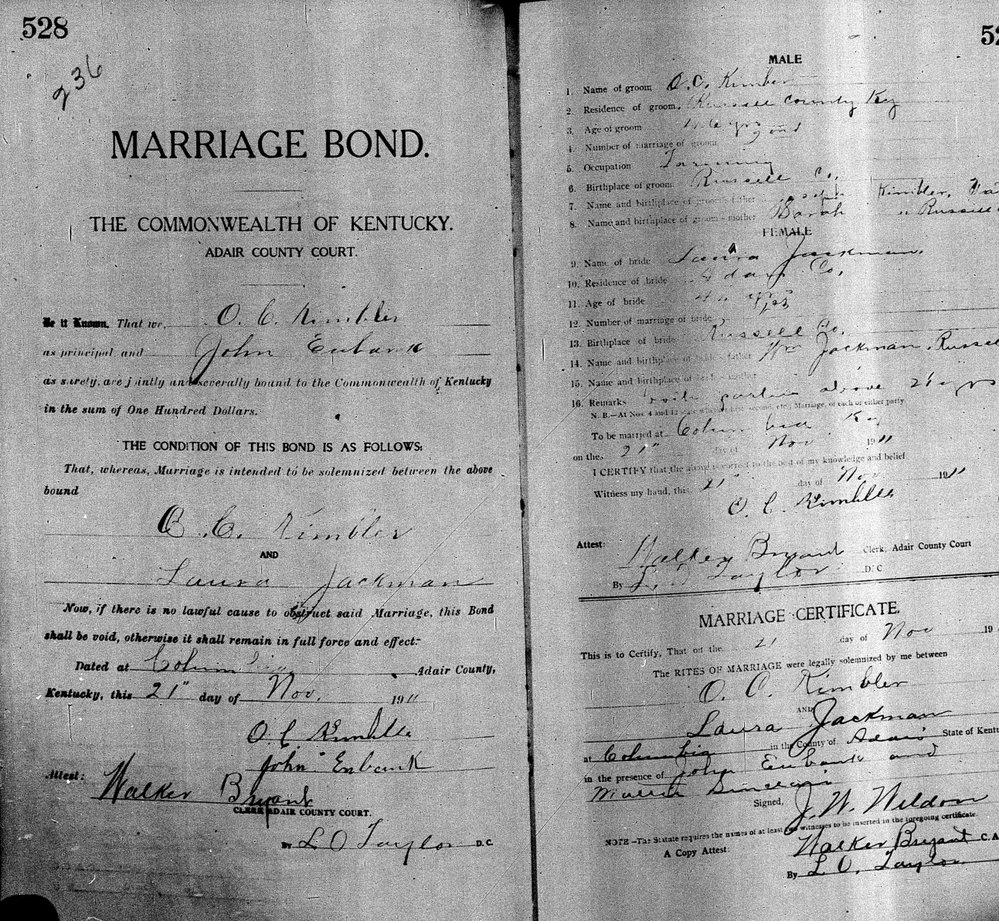 528
236
MARRIAGE BOND.
THE COMMONWEALTH OF KENTUCKY.
ADAIR COUNTY COURT.
Be it Known, That we, O. C. Kimbler
as principal and John Eubank
as surety, are jointly and severally bound to the Commonwealth of Kentucky
in the sum of One Hundred Dollars.
THE CONDITION OF THIS BOND IS AS FOLLOWS:
That, whereas, Marriage is intended to be solemnized between the above
bound
O. C. Kimbler
AND
Laura Jackman
Now, if there is no lawful cause to obstruct said Marriage, this Bond
shall be void, otherwise it shall remain in full force and effect:
Dated at Columbia Adair County,
Kentucky, this 21" day of Nov. 1911
O. C. Kimbler
John Eubank
Attest: Walker Bryant
CLERK ADAIR COUNTY COURT.
BY L O Taylor D.C
52
MALE
1. Name of groom O. C. Kimbler
2. Residence of groom Russell County Key
3. Age of groom yrs
4. Number of marriage of groom 2nd
5. Occupation Farming
6. Birthplace of groom Russell Co.
7. Name and birthplace of groom's father Kimbler,
8. Name and birthplace of groom's mother Sarah " Russell
FEMALE
9. Name of bride Laura Jackman
10. Residence of bride Adair Co.
11. Age of bride yrs
12. Number of marriage of bride
13. Birthplace of bride Russell Co.
14. Name and birthplace of bride's father Wm Jackman, Russel
15. Name and birthplace of bride's mother
16. Remarks both parties above 21 yrs
N. B.—At Nos. 4 and 12 state whether first, second, etc., Marriage, of each or either party.
To be married at Columbia Key
on the 21" day of Nov 1911
I CERTIFY that the above is correct to the best of my knowledge and belief.
Witness my hand, this 21" day of Nov 1911
O. C. Kimbler
Attest: Walker Bryant Clerk, Adair County Court
By L. O Taylor D C
MARRIAGE CERTIFICATE.
This is to Certify, That on the 21 day of Nov 19
The RITES OF MARRIAGE were legally solemnized by me between
O. C. Kimbler
AND
Laura Jackman
at Columbia in the County of Adair State of Kentu
in the presence of John Eubank and
Mattie Sinclair
Signed, J. W. Weldon
NOTE—The Statute requires the names of at least witnesses to be inserted in the foregoing certificate.
A Copy Attest: Walker Bryant C.A
By L. O. Taylor